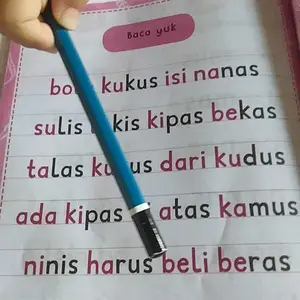 Baca yuk
kukus isi nanas
sulis kis kipas bekas
talas dari kudus
ada kipas atas kamus
ninis harus beli beras